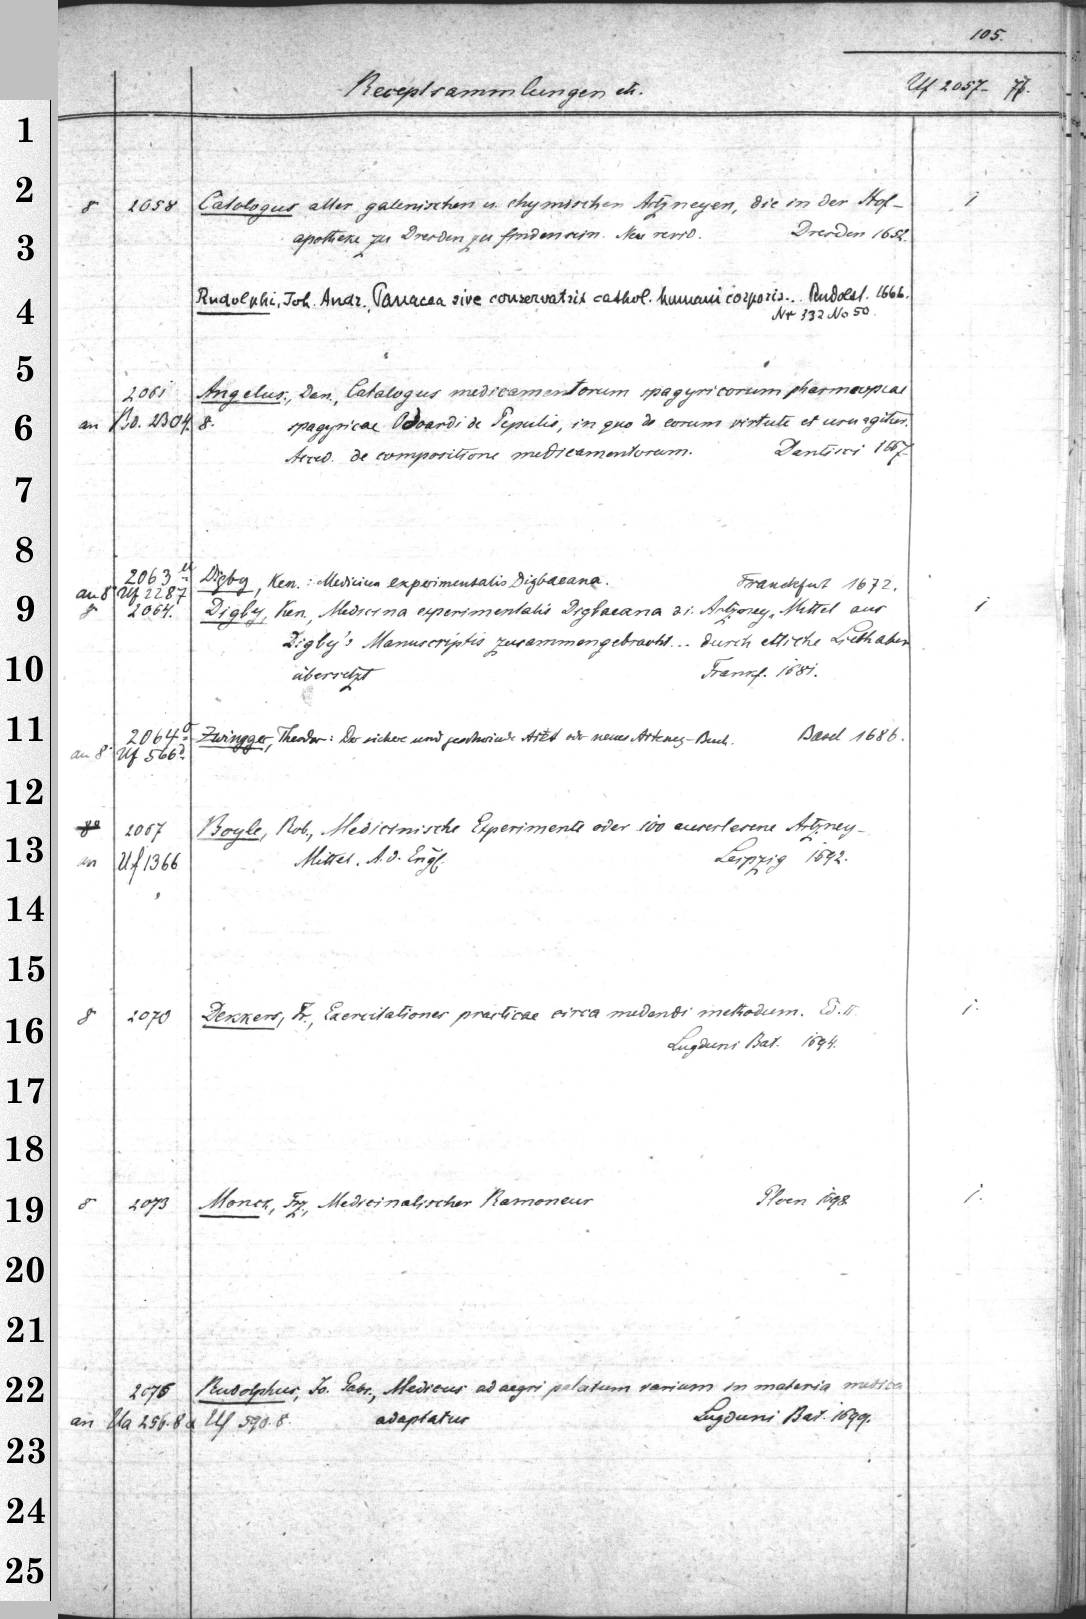 105.
Receptsammlungen etc. Uf 2057- 77.
1
2
8 2058 Catalogus aller galenischen u. chymischen Artzneyen, die in der Hof- 1
3
apotheke zu Dresden zu finden sein. Neu revid. Dresden 1652.
4
Rudolphi, Joh. Andr., Panacea sive conservatrix cathol. humani corporis... Rudolst. 1666.
Nr 332 No 50.
5
2061 Angelus, Dan., Catalogus medicamentorum spagyricorum pharmacopiae
6
an Bo. 2304. 8. spagyricae Boardi de Pepulis, in quo de eorum virtute et usu agitur.
Acced. de compositione medicamentorum. Dantisci 1667.
7
8
2063 Digby, Ken.: Medicina experimentalis Digbaeana. Franckfurt 1672.
an 8° Uf 2287
9
8 2064. Digby, Ken., Medicina experimentalis Digbaeana d.i. Artzney-Mittel aus 1
Digby's Manuscriptis zusammengebracht... durch etliche Liebhaber
10
übersetzt Frankf. 1681.
11
2064 a Zwingger, Theodor: Der sichere und geschwinde Artzt oder neues Artzney-Buch. Basel 1686.
an 8° Uf 566
12
8° 2067 Boyle, Rob., Medicinische Experimente oder 100 auserlesene Artzney-
13
an Uf 1366 Mittel. A. d. Engl. Leipzig 1692.
14
15
8 2070 Dekkers, Fr., Exercitationes practicae circa medendi methodum. Ed. II. 1.
16
Lugduni Bat. 1694.
17
18
8 2073 Monck, Frz., Medicinalischer Ramoneur Ploen 1698 1.
19
20
21
22
2075 Rudolphus, Jo. Gabr., Medicus ad aegri palatum varium in materia medica
an Ua 256.8 & Uf 590.8. adaptatus Lugduni Bat. 1699.
23
24
25